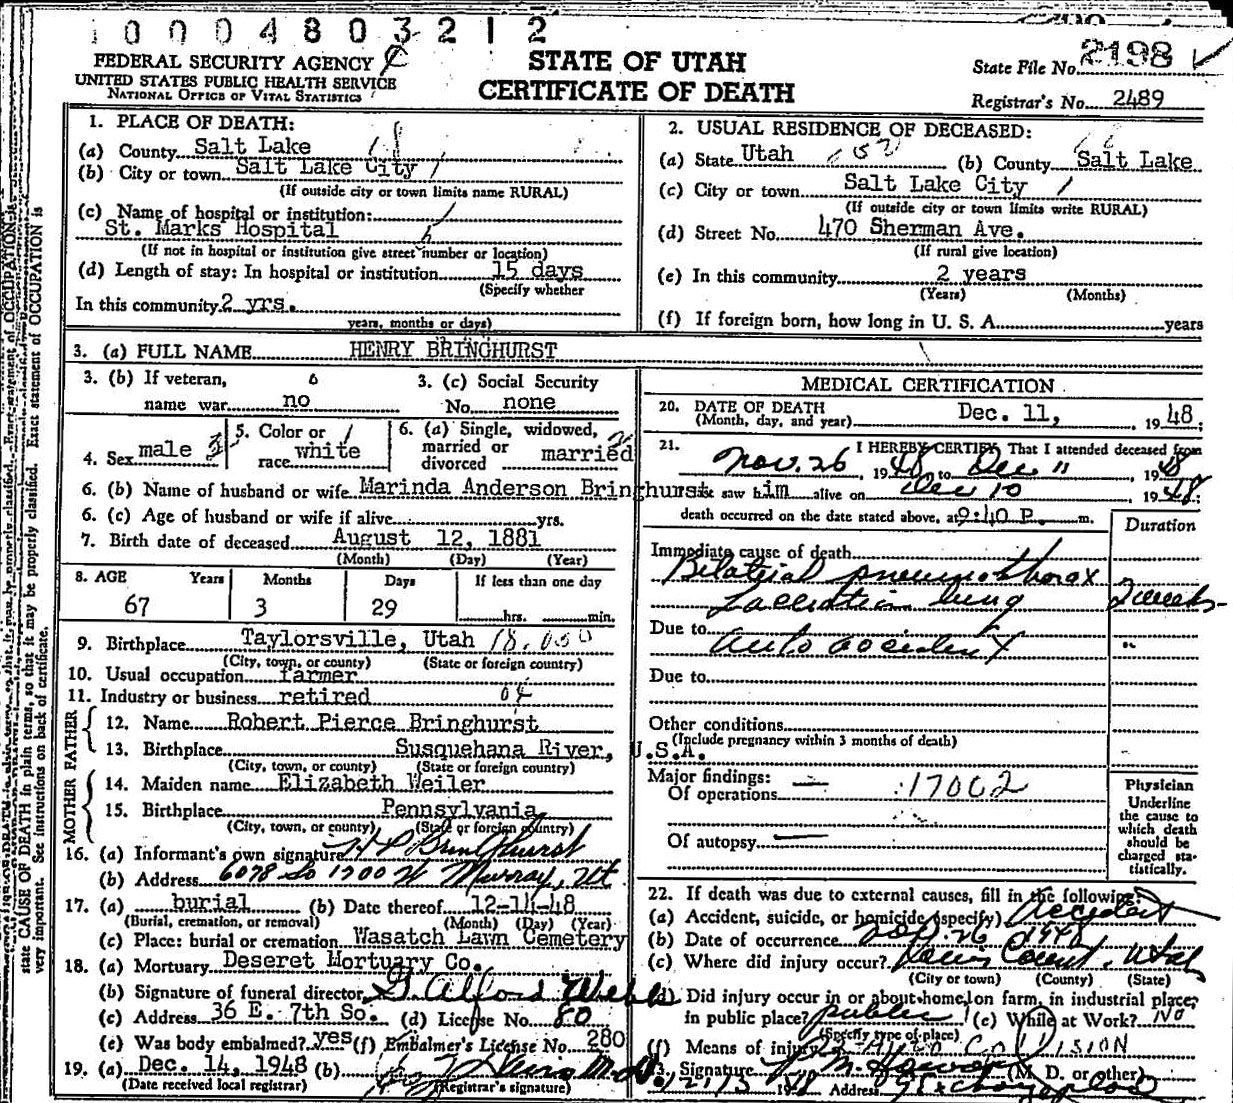 1 0 0 0 4 8 0 3 2 1 2
FEDERAL SECURITY AGENCY
UNITED STATES PUBLIC HEALTH SERVICE
NATIONAL OFFICE OF VITAL STATISTICS
STATE OF UTAH
CERTIFICATE OF DEATH
State File No. 2198
Registrar's No. 2489
1. PLACE OF DEATH:
(a) County Salt Lake
(b) City or town Salt Lake City
(If outside city or town limits name RURAL)
(c) Name of hospital or institution:
St. Marks Hospital
(If not in hospital or institution give street number or location)
(d) Length of stay: In hospital or institution 15 days
(Specify whether
In this community 2 yrs.
years, months or days)
2. USUAL RESIDENCE OF DECEASED:
(a) State Utah (b) County Salt Lake
(c) City or town Salt Lake City
(If outside city or town limits write RURAL)
(d) Street No. 470 Sherman Ave.
(If rural give location)
(e) In this community 2 years
(Years) (Months)
(f) If foreign born, how long in U. S. A. years
3. (a) FULL NAME HENRY BRINGHURST
3. (b) If veteran, name war no
3. (c) Social Security No. none
4. Sex male
5. Color or race white
6. (a) Single, widowed, married or divorced married
6. (b) Name of husband or wife Marinda Anderson Bringhurst
6. (c) Age of husband or wife if alive yrs.
7. Birth date of deceased August 12, 1881
(Month) (Day) (Year)
8. AGE Years Months Days If less than one day
67 3 29 hrs. min.
9. Birthplace Taylorsville, Utah
(City, town, or county) (State or foreign country)
10. Usual occupation farmer
11. Industry or business retired
FATHER
12. Name Robert Pierce Bringhurst
13. Birthplace Susquehana River, U.S.A.
(City, town, or county) (State or foreign country)
MOTHER
14. Maiden name Elizabeth Weiler
15. Birthplace Pennsylvania
(City, town, or county) (State or foreign country)
16. (a) Informant's own signature Bringhurst
(b) Address 6078 So 1300 W Murray, Ut
17. (a) burial (b) Date thereof 12-14-48
(Burial, cremation, or removal) (Month) (Day) (Year)
(c) Place: burial or cremation Wasatch Lawn Cemetery
18. (a) Mortuary Deseret Mortuary Co.
(b) Signature of funeral director
(c) Address 36 E. 7th So. (d) License No. 80
(e) Was body embalmed? yes (f) Embalmer's License No. 280
19. (a) Dec. 14, 1948 (b)
(Date received local registrar) (Registrar's signature)
MEDICAL CERTIFICATION
20. DATE OF DEATH
(Month, day, and year) Dec. 11, 1948.
21. I HEREBY CERTIFY, That I attended deceased from
Nov. 26, 1948 to Dec 11, 1948
saw him alive on Dec 10, 1948;
death occurred on the date stated above, at 9:40 P. m.
Duration
Immediate cause of death
Bilateral pneumothorax
Laceration lung 2 weeks
Due to auto accident "
Due to
Other conditions
(Include pregnancy within 3 months of death)
Major findings:
Of operations 17002
Of autopsy
Physician
Underline
the cause to
which death
should be
charged sta-
tistically.
22. If death was due to external causes, fill in the following:
(a) Accident, suicide, or homicide (specify) Accident
(b) Date of occurrence Nov. 26 1948
(c) Where did injury occur? Davis County, Utah
(City or town) (County) (State)
(d) Did injury occur in or about home, on farm, in industrial place,
in public place? public (e) While at Work? no
(Specify type of place)
(f) Means of injury AUTO COLLISION
23. Signature (M. D. or other)
Address
state CAUSE OF DEATH in plain terms, so that it may be properly classified. Exact statement of OCCUPATION is
very important. See instructions on back of certificate.